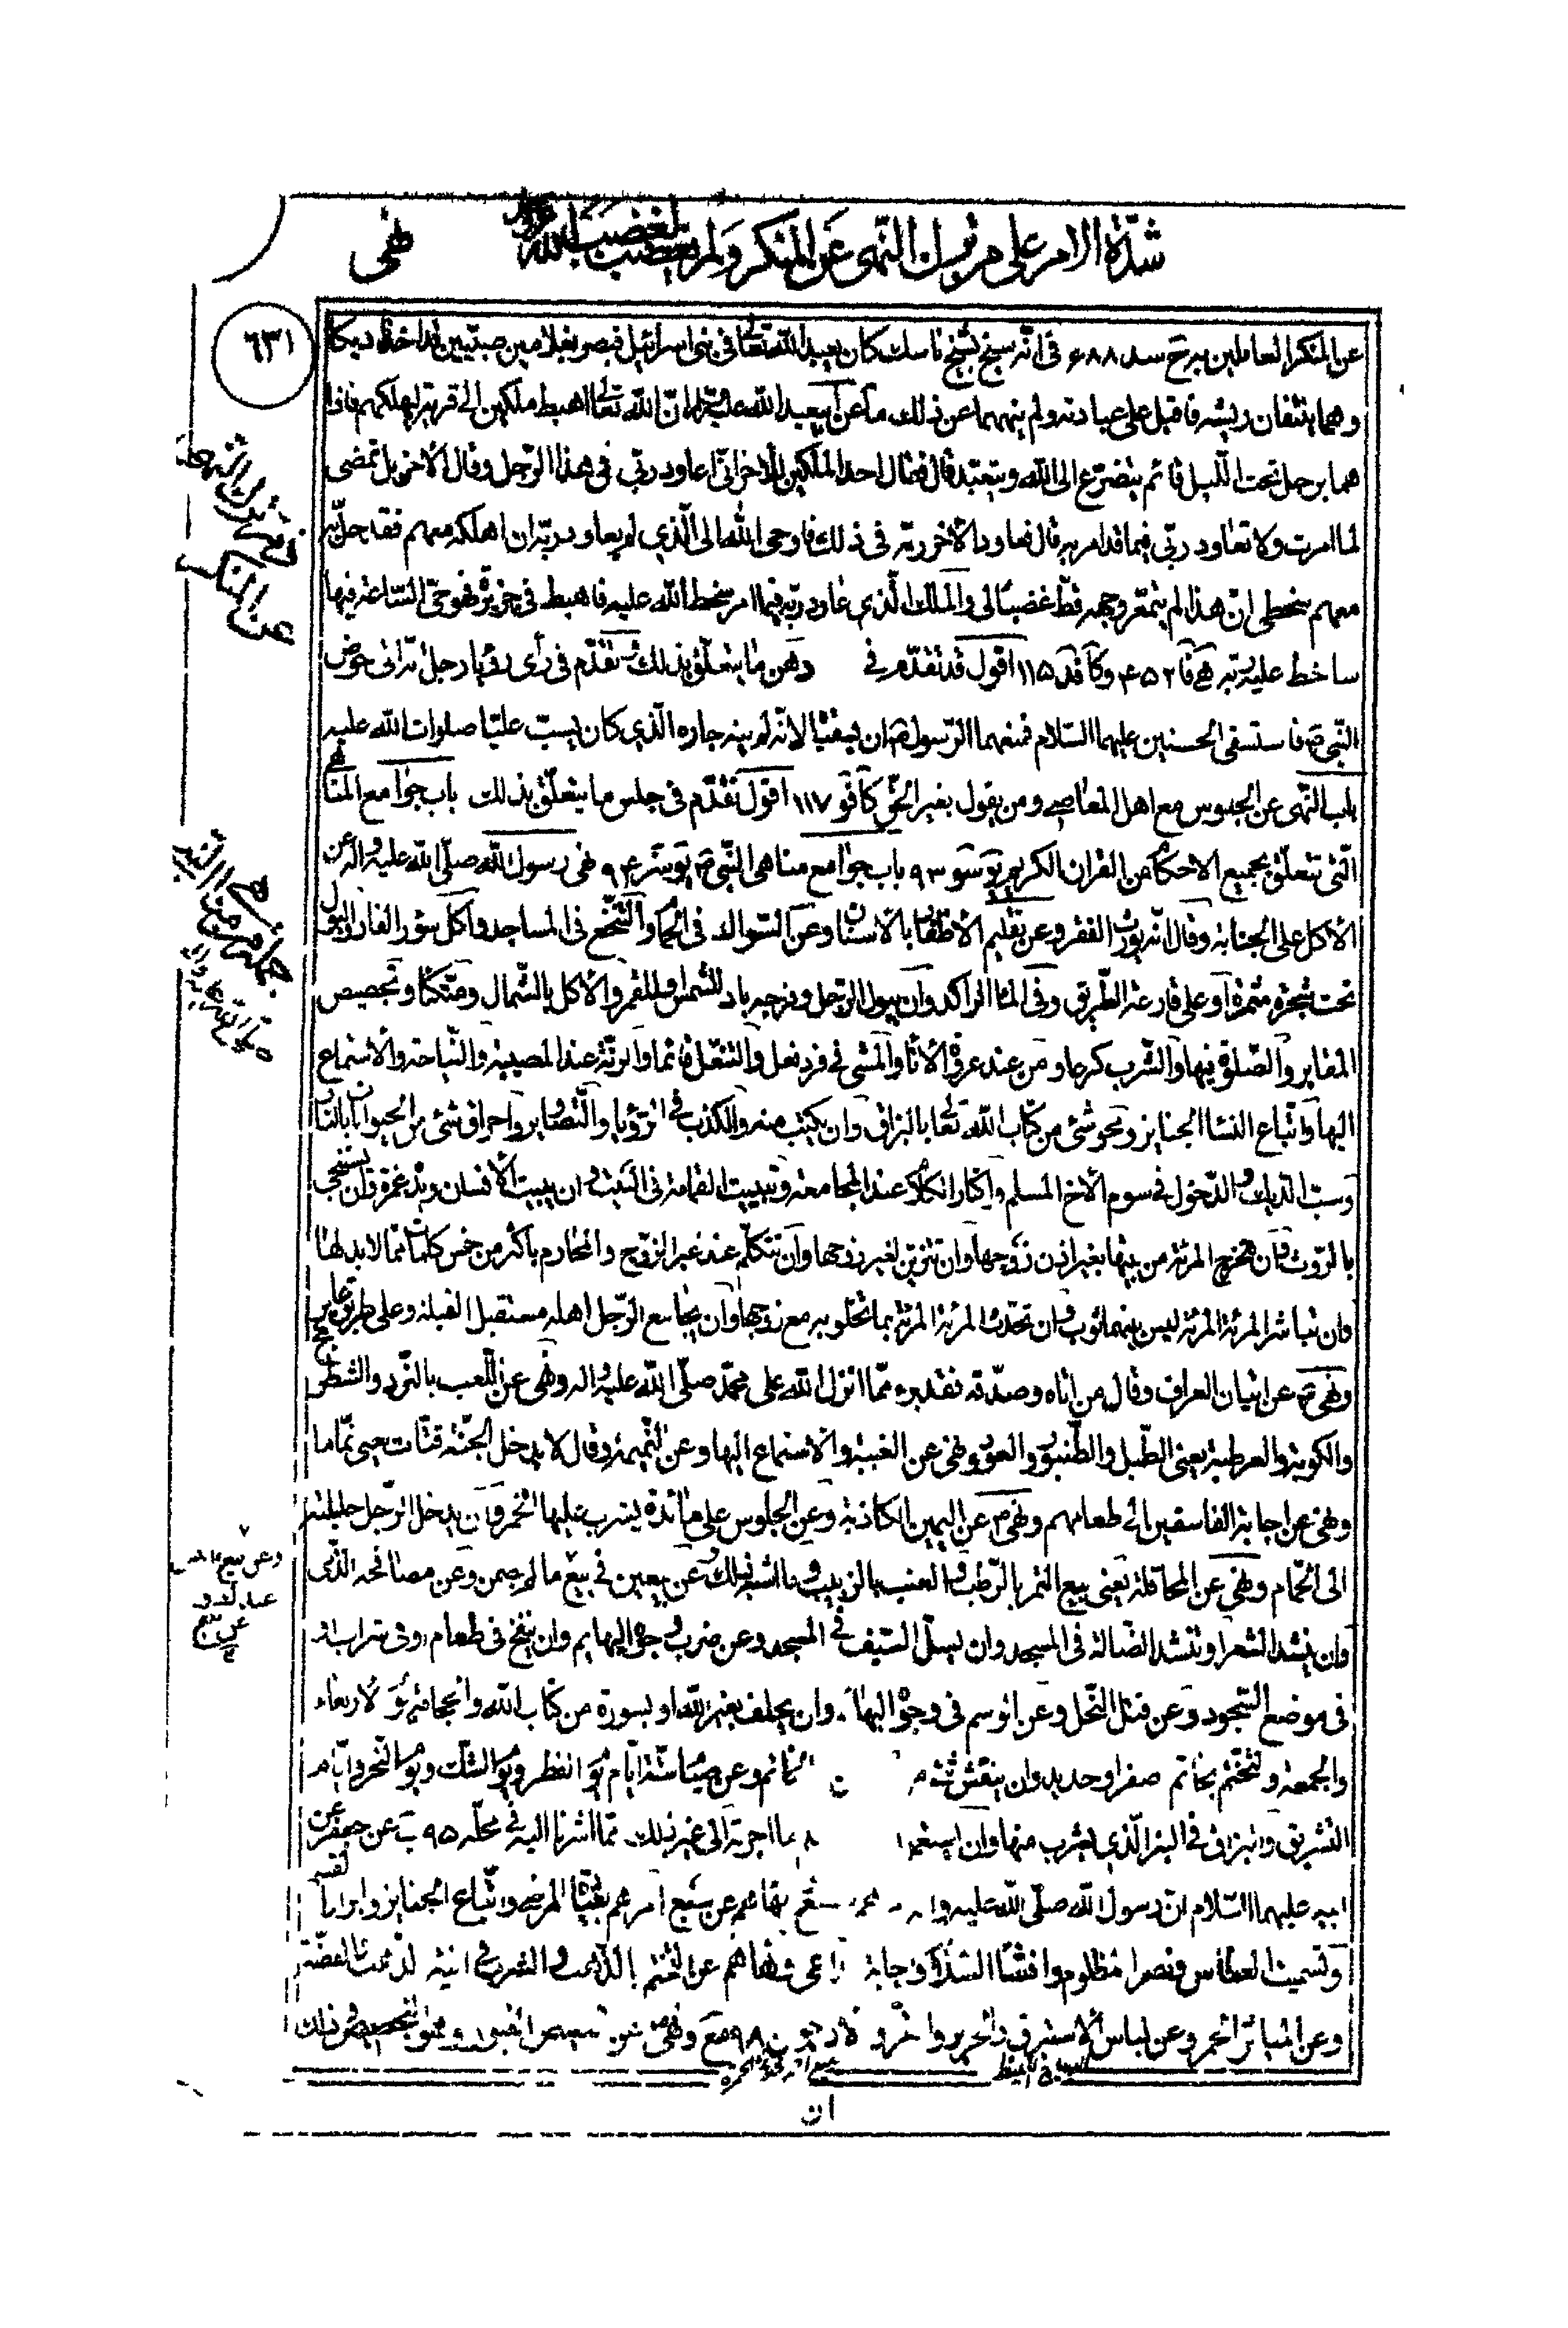 شدّة الامر على من ترك النّهى عن المنكر ولم يغضب لغضب الله عزوجل نهى
٦٣١
عن المنكر العاملين به رح سد ٨٨ ع فى انّه سيخ بشيخ ناسك كان يعبد الله تعالى فى بنى اسرائيل فبصر بغلامين صبيّين قد اخذا ديكا
وهما ينتفان ريشه فاقبل على عبادته ولم ينههما عن ذلك ما عن ابيعبد الله عليه السّلام انّ الله تعالى اهبط ملكين الى قرية ليهلكهم فاذا
هما برجل تحت اللّيل قائم يتضرّع الى الله ويتعبّد قال فقال احد الملكين للآخر انّى اعاود ربّى فى هذا الرّجل وقال الآخر بل تمضى
لما امرت ولا تعاود ربّى فيما قد امر به قال فعاود الآخر ربّه فى ذلك فاوحى الله الى الّذى لم يعاود ربّه ان اهلكه معهم فقد حلّ به
معهم سخطى انّ هذا لم يتمعّر وجهه قطّ غضبا لى والملك الّذى عاود ربّه فيما امر سخط الله عليه فاهبط فى جزيرة فهو حىّ السّاعة فيها
ساخط عليه ربّه فا ٤٥٢ وكا قد ١١٥ اقول قد تقدّم فى دهن ما يتعلّق بذلك تقدّم فى رأى رؤيا رجل انّه اتى حوض
النّبى ص فاستسقى الحسنين عليهما السّلام فمنعهما الرّسول ص ان يسقيا لانّه لم ينه جاره الّذى كان يسبّ عليّا صلوات الله عليه
باب النّهى عن الجلوس مع اهل المعاصى ومن يقول بغير الحقّ كا فو ١١٧ اقول تقدّم فى جلس ما يتعلّق بذلك باب جوامع المناهى
الّتى تتعلّق بجميع الاحكام من القران الكريم يو سو ٩٣ باب جوامع مناهى النّبى ص يو سز ٩٤ نهى رسول الله صلّى الله عليه واله عن
الأكل على الجنابة وقال انّه يورث الفقر وعن تقليم الأظفار بالاسنان وعن السّواك فى الحمّام والتّنخّع فى المساجد واكل سؤر الفار والبول
تحت شجرة مثمرة او على قارعة الطّريق وفى الماء الراكد وان يبول الرجل وفرجه باد للشمس وللقمر والأكل بالشّمال ومتّكئا وتجصيص
المقابر والصّلوة فيها والشّرب كرعا ومن عند عروة الأناء والمشى فى فرد نعل والتنعّل قائما والرنّة عند المصيبة والنّياحة والأستماع
اليها واتّباع النساء الجنايز ومحو شئ من كتاب الله تعالى بالبزاق وان يكتب منه والكذب فى الرّؤيا والتّصاوير واحراق شئ من الحيوانات بالنار
وسبّ الديك والدّخول فى سوم الأخ المسلم واكثار الكلام عند المجامعة وتبييت القمامة فى البيت وان يبيت الأنسان ويده غمرة وان يستنجى
بالرّوث وان تخرج المرئة من بيتها بغير اذن زوجها وان تتزيّن لغير زوجها وان تتكلّم عند غير الزوج والمحارم باكثر من خمس كلمات ممّا لابدّ لها
وان تباشر المرئة المرئة ليس بينهما ثوب وان تحدّث المرئة المرئة بما تخلو به مع زوجها وان يجامع الرّجل اهله مستقبل القبلة وعلى طريق عامر
ونهى ص عن اتيان العراف وقال من اتاه وصدّقه فقد برء ممّا انزل الله على محمّد صلّى الله عليه واله ونهى عن اللّعب بالنّرد والشطرنج
والكوبة والعرطبة يعنى الطّبل والطّنبور والعود ونهى عن الغيبة والأستماع اليها وعن النّميمة وقال لا يدخل الجنّة قتّات يعنى نمّاما
ونهى عن اجابة الفاسقين الى طعامهم ونهى ص عن اليمين الكاذبة وعن الجلوس على مائدة يشرب عليها الخمر وان يدخل الرّجل حليلته
الى الحمّام ونهى عن المحاقلة يعنى بيع التمر بالرّطب والعنب بالزبيب وما اشبه ذلك وعن بيعين فى بيع ما لم يضمن وعن مصافحة الذمّى
وان ينشد الشعر او تنشد الضّالة فى المسجد وان يسلّ السّيف فى المسجد وعن ضرب وجوه البهايم وان ينفخ فى طعام او فى شراب او
فى موضع السّجود وعن قتل النّحل وعن الوسم فى وجوه البهائم وان يحلف بغير الله او بسورة من كتاب الله والحجامة يوم الاربعاء
والجمعة والتختّم بخاتم صفر او حديد وان ينقش شئ الخاتم وعن صيام ستّة ايّام يوم الفطر ويوم الشك ويوم النحر وايّام
التشريق والبزاق فى البئر الّذى يشرب منها وان يستعمل ما اجرته الى غير ذلك ممّا اشرنا اليه فى محلّه ٩٥ ب عن جعفر عن
ابيه عليهما السّلام انّ رسول الله صلّى الله عليه واله نهاهم عن سبع امرهم بعيادة المرضى واتّباع الجنايز وابرار القسم
وتسميت العطاس ونصر المظلوم وافشاء السّلام واجابة الدّاعى ونهاهم عن التختّم بالذّهب والشرب فى انية الذهب والفضّة
وعن المياثر الحمر وعن لباس الأستبرق والحرير والقزّ و ٩٨ مع ونهى عن
ان
فى ترك النهى
عن المنكر
جوامع مناهى النبى
وعن بيع